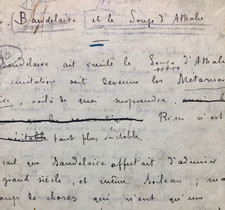 (Baudelaire et le Songe d'Athalie
Baudelaire ait imité le Songe d'Athalie
imitation soit devenue les Métamor
voilà de quoi surprendre.
Rien n'est
pourtant plus véritable
sait que Baudelaire affectait d'admirer
grand siècle, et même Boileau ;
choses qui n'ont qu'une